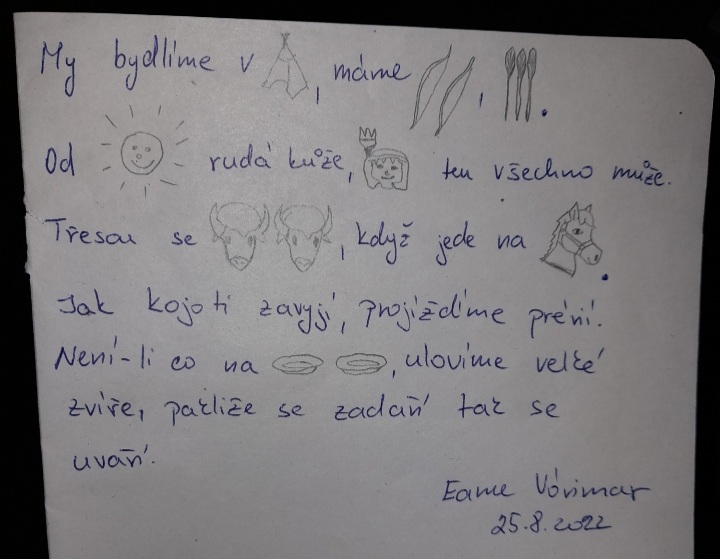 My bydlíme v , máme , .
Od rudá kůže, ten všechno může.
Třesou se , když jede na .
Jak kojoti zavyjí, projíždíme prérií.
Není-li co na , ulovíme velké
zvíře, pakliže se zadaří tak se
uvaří.
Eame Vórimar
25.8.2022